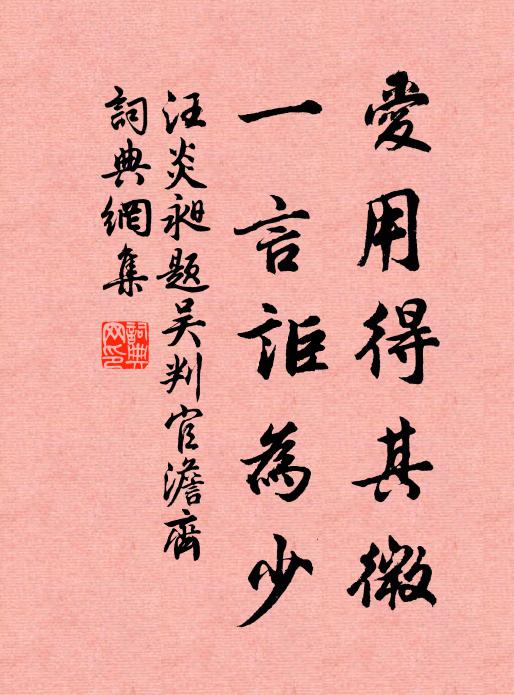 愛用得其微
一言詎為少
汪炎昶題吴判官澹齋
詞典網集
詞典网印